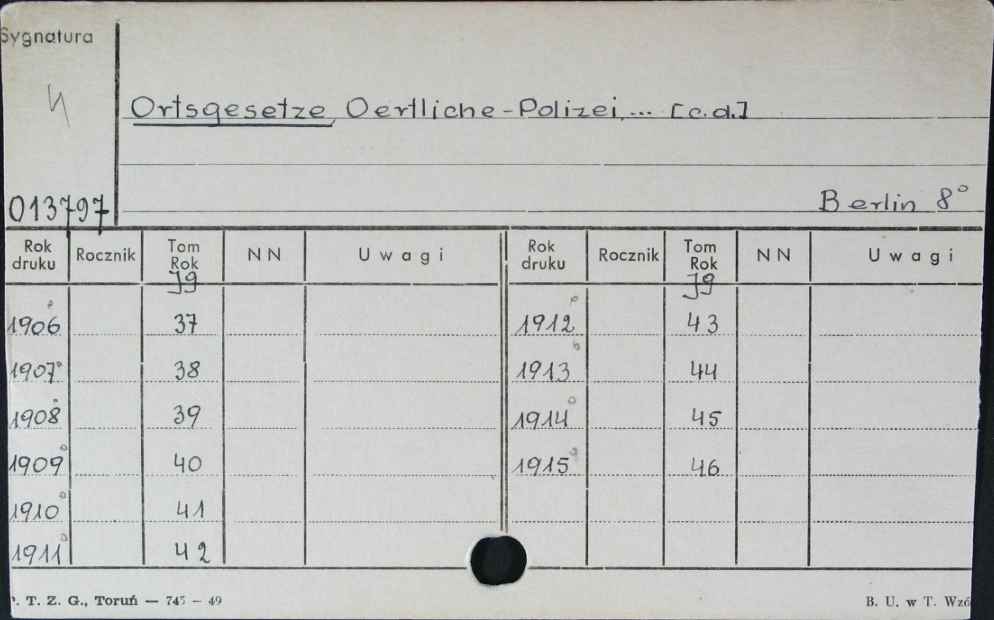 Sygnatura
4
Ortsgesetze, Oertliche-Polizei,... [c.d.]
013797
Berlin 8°
Rok druku Rocznik Tom Rok NN Uwagi Rok druku Rocznik Tom Rok NN Uwagi
Jg Jg
1906 37 1912 43
1907 38 1913 44
1908 39 1914 45
1909 40 1915 46
1910 41
1911 42
T. Z. G., Toruń — 745 — 49 B. U. w T.